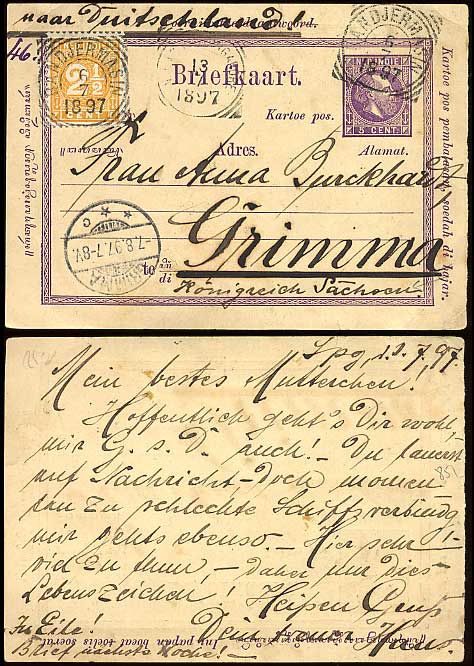 naar Duitschland
46.
BANDJERMASIN
6
1897
2½
CENT
13
1897
BANDJERMASIN
6
1897
NED. INDIE
5 CENT.
Briefkaart.
Kartoe pos.
Adres.
Alamat.
Kartoe pos pembalesan, soedah di bajar.
Frau Anna Burckhardt
Grimma
te in
di
Königreich Sachsen!
GRIMMA
-7.8.97.7-8V.
* * c
7. 97.
Mein bestes Mutterchen!
Hoffentlich geht's Dir wohl,
mir G. s. D. auch! – Du lauerst
auf Nachricht – doch momen
tan zu schlechte Schiffsverbindg
mir gehts ebenso. – Hier sehr
viel zu thun, – daher nur dies
Lebenszeichen! Heißen Gruß
Dein Hans.
In Eile.
Brief nächste Woche! –